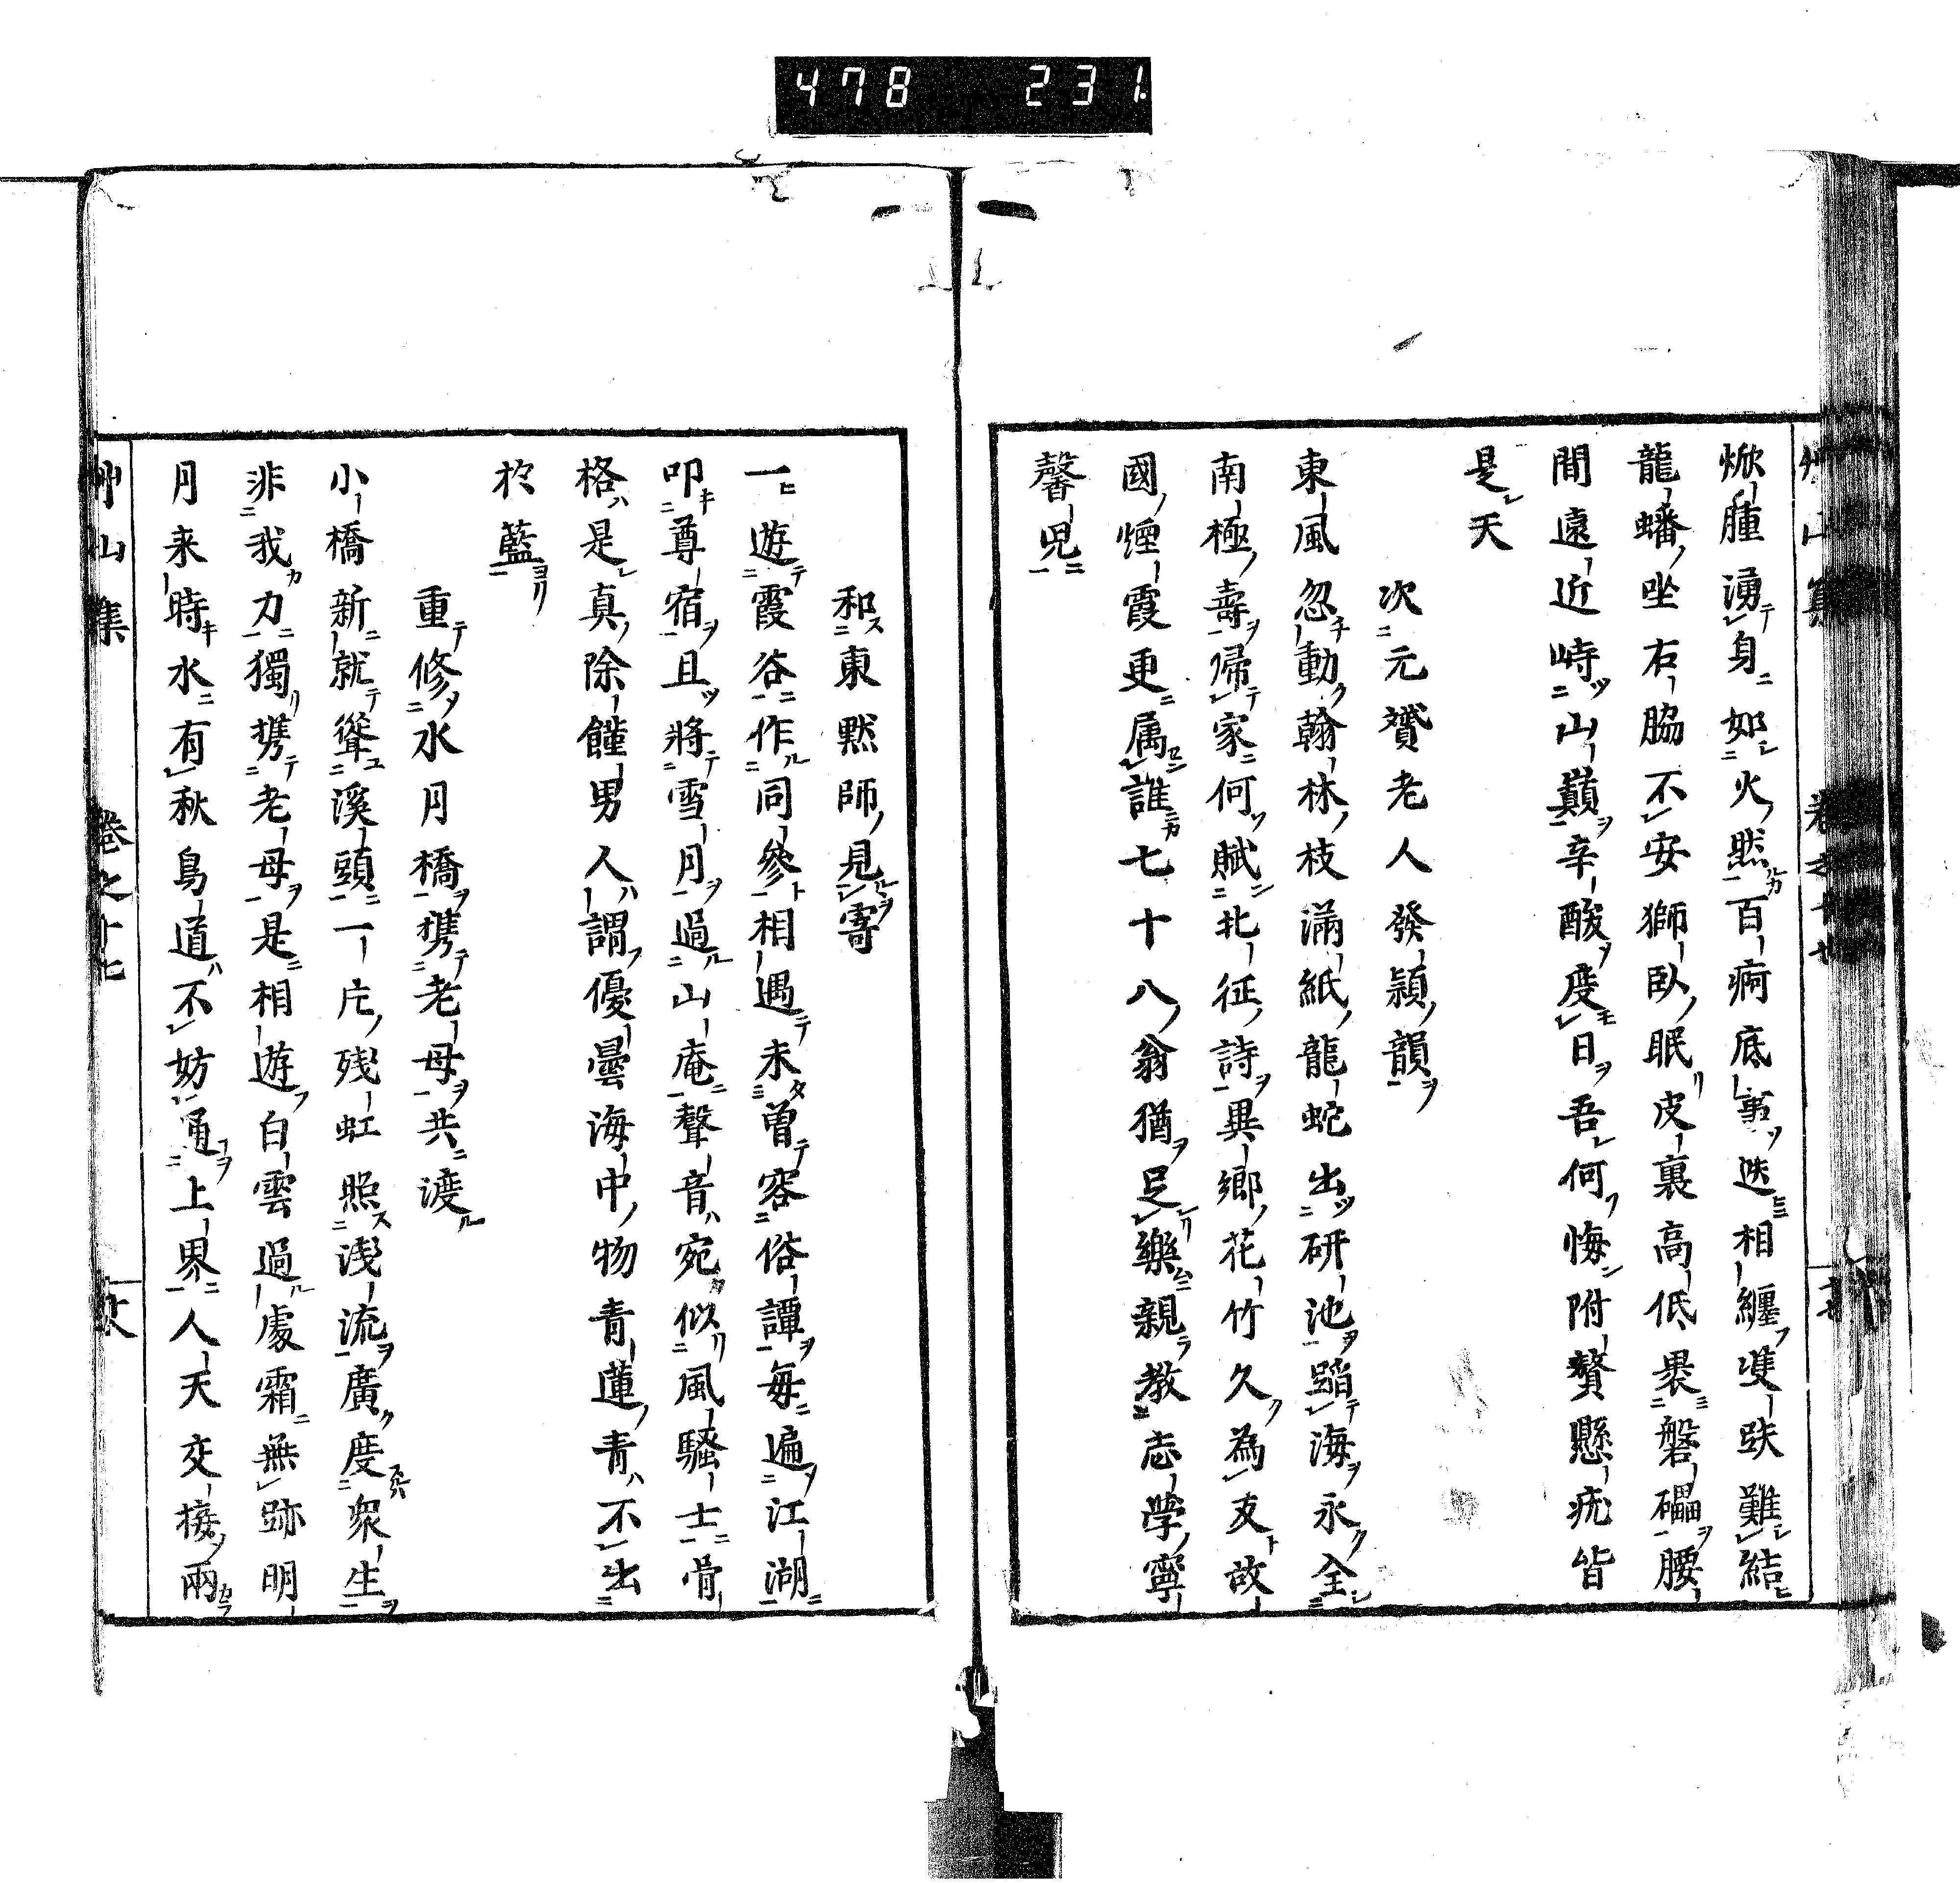 478 231
焮腫湧身如火然百痾底事迭相纏雙趺難結
龍蟠坐右脇不安獅臥眠皮裏高低裹磐礧腰
間遠近峙山巔辛酸度日吾何悔附贅懸疣皆
是天
次元贇老人發穎韻
東風忽動翰林枝滿紙龍蛇出研池蹈海永全
南極壽帰家何賦北征詩異鄉花竹久為友故
國煙霞更属誰七十八翁猶足樂親教志学寧
馨児
和東默師見寄
一遊霞谷作同參相遇未曾容俗譚毎遍江湖
叩尊宿且將雪月過山庵聲音宛似風騷士骨
格是真除饉男人謂優曇海中物青蓮青不出
於藍
重修水月橋攜老母共渡
小橋新就聳溪頭一片残虹照浅流廣度衆生
非我力獨攜老母是相遊白雲過處霜無跡明
月来時水有秋鳥道不妨通上界人天交接兩
艸山集 卷之十七 廿六